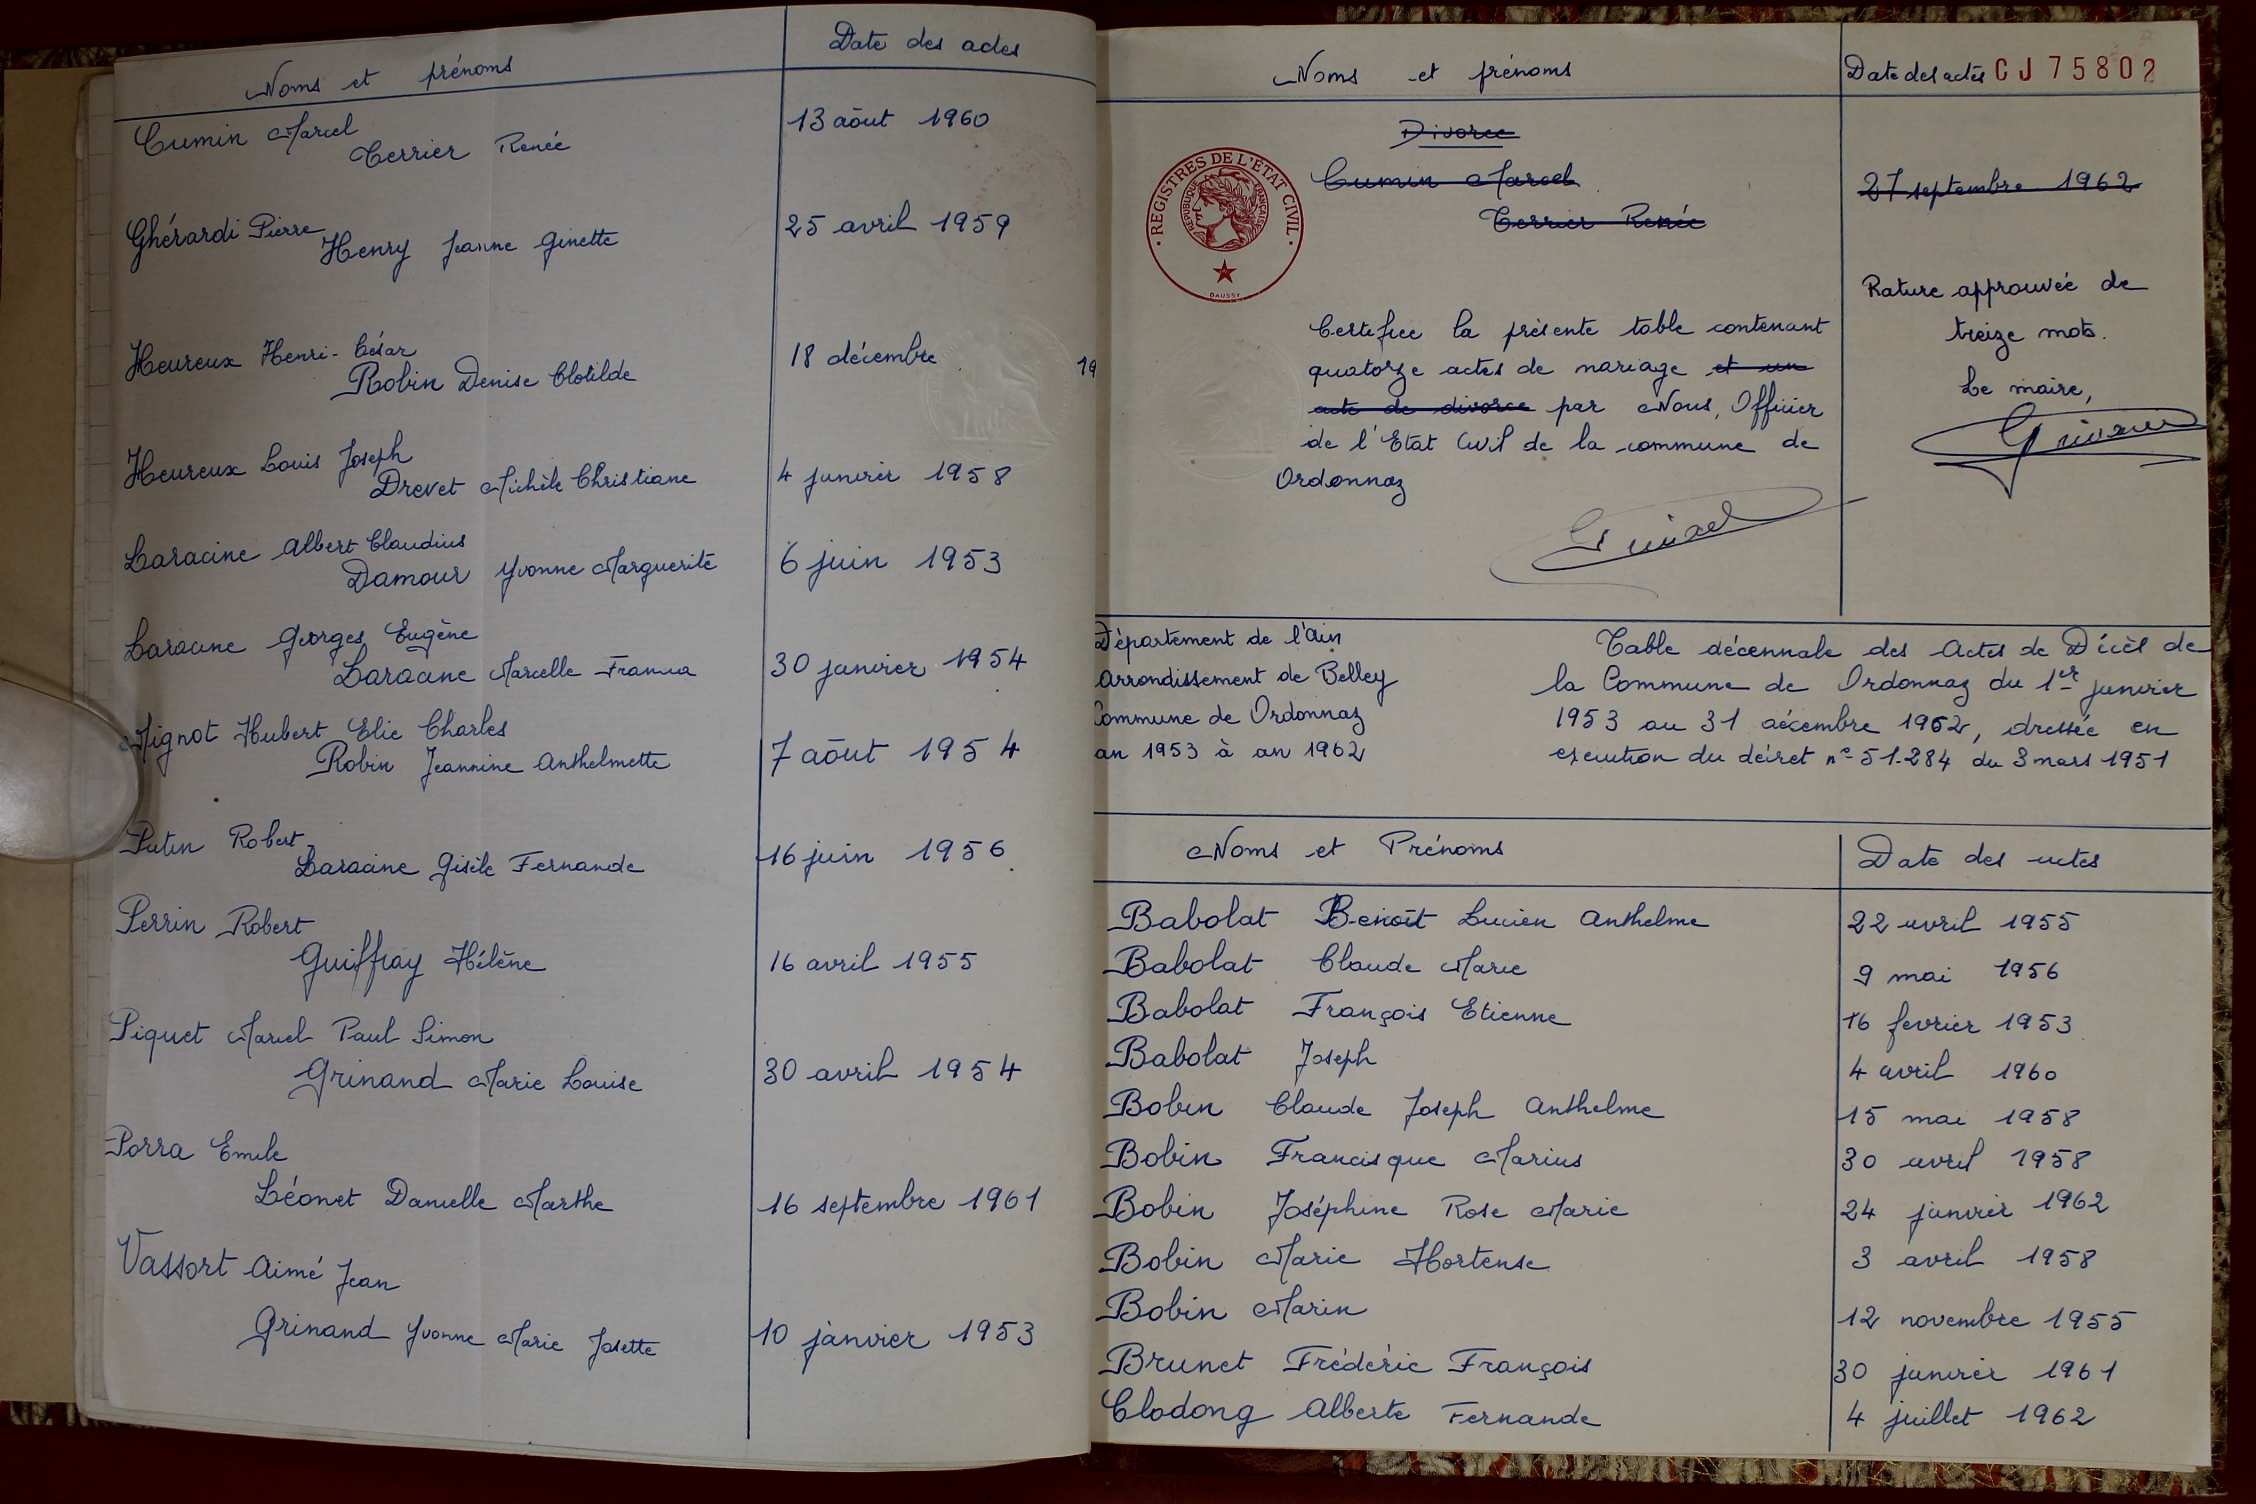 Noms et prénoms Date des actes
Cumin Marcel 13 aôut 1960
Terrier Renée
Ghérardi Pierre 25 avril 1959
Henry Jeanne Ginette
Heureux Henri-César 18 décembre 19
Robin Denise Clotilde
Heureux Louis Joseph
Drevet Michèle Christiane 4 janvier 1958
Laracine Albert Claudius
Damour Yvonne Marguerite 6 juin 1953
Laracine Georges Eugène
Laracine Marcelle Francia 30 janvier 1954
Mignot Hubert Elie Charles
Robin Jeannine Anthelmette 7 aôut 1954
Putin Robert
Laracine Gisèle Fernande 16 juin 1956
Perrin Robert
Guiffray Hélène 16 avril 1955
Piquet Marcel Paul Simon
Grinand Marie Louise 30 avril 1954
Porra Emile
Léonet Danielle Marthe 16 septembre 1961
Vassort Aimé Jean
Grinand Yvonne Marie Josette 10 janvier 1953
Noms et prénoms Date des actes CJ 75802
Divorce
Cumin Marcel 27 septembre 1962
Terrier Renée
REGISTRES DE L'ÉTAT CIVIL
RÉPUBLIQUE FRANÇAISE
DAUSSY
Rature approuvée de
treize mots.
Le maire,
Certifiee la présente table contenant
quatorze actes de mariage et un
acte de divorce par Nous, Officier
de l'Etat Civil de la commune de
Ordonnaz
Département de l'Ain
Arrondissement de Belley
Commune de Ordonnaz
an 1953 à an 1962
Table décennale des Actes de Décès de
la Commune de Ordonnaz du 1er janvier
1953 au 31 décembre 1962, dressée en
exécution du décret n° 51.284 du 3 mars 1951
Noms et Prénoms Date des actes
Babolat Benoît Lucien Anthelme 22 avril 1955
Babolat Claude Marie 9 mai 1956
Babolat François Etienne 16 fevrier 1953
Babolat Joseph 4 avril 1960
Bobin Claude Joseph Anthelme 15 mai 1958
Bobin Francisque Marius 30 avril 1958
Bobin Joséphine Rose Marie 24 janvier 1962
Bobin Marie Hortense 3 avril 1958
Bobin Marin 12 novembre 1955
Brunet Frédéric François 30 janvier 1961
Clodong Alberte Fernande 4 juillet 1962